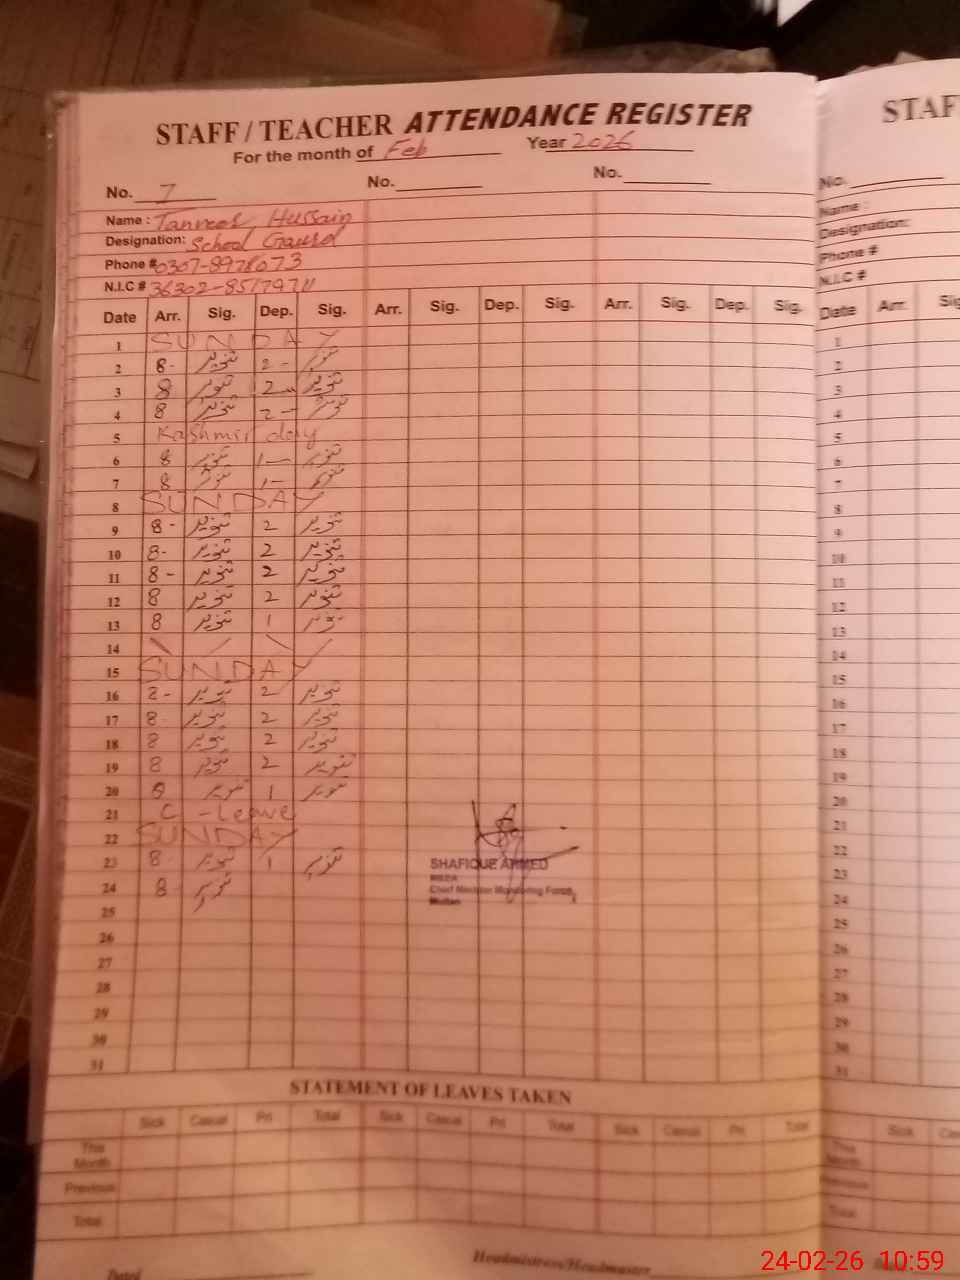 STAFF / TEACHER ATTENDANCE REGISTER
For the month of Feb Year 2026
No. 7 No. No.
Name : Hussain
Designation: School Gaurd
Phone # 0307-8978073
N.I.C #
Date Arr. Sig. Dep. Sig. Arr. Sig. Dep. Sig. Arr. Sig. Dep. Sig.
1 SUNDAY
2 8- تنویر 2- تنویر
3 8 تنویر 2 تنویر
4 8 تنویر 2- تنویر
5 Kashmir day
6 8 تنویر 1- تنویر
7 8 تنویر 1- تنویر
8 SUNDAY
9 8- تنویر 2 تنویر
10 8- تنویر 2 تنویر
11 8- تنویر 2 تنویر
12 8 تنویر 2 تنویر
13 8 تنویر 1 تنویر
14
15 SUNDAY
16 8- تنویر 2 تنویر
17 8- تنویر 2 تنویر
18 8 تنویر 2 تنویر
19 8 تنویر 2 تنویر
20 8 تنویر 1 تنویر
21 C-Leave
22 SUNDAY
23 8- تنویر 1 تنویر
24 8 تنویر
SHAFIQUE AHMED
MEA
Chief Minister Monitoring Force
Multan
25
26
27
28
29
30
31
STATEMENT OF LEAVES TAKEN
Sick Casual Pri Total Sick Casual Pri Total Sick Casual Pri Total
This Month
Previous
Total
Headmistress/Headmaster
Dated
STAF
No.
Name :
Designation:
Phone #
N.I.C #
Date Arr. Sig
1
2
3
4
5
6
7
8
9
10
11
12
13
14
15
16
17
18
19
20
21
22
23
24
25
26
27
28
29
30
31
Sick
This Month
Previous
Total
24-02-26 10:59